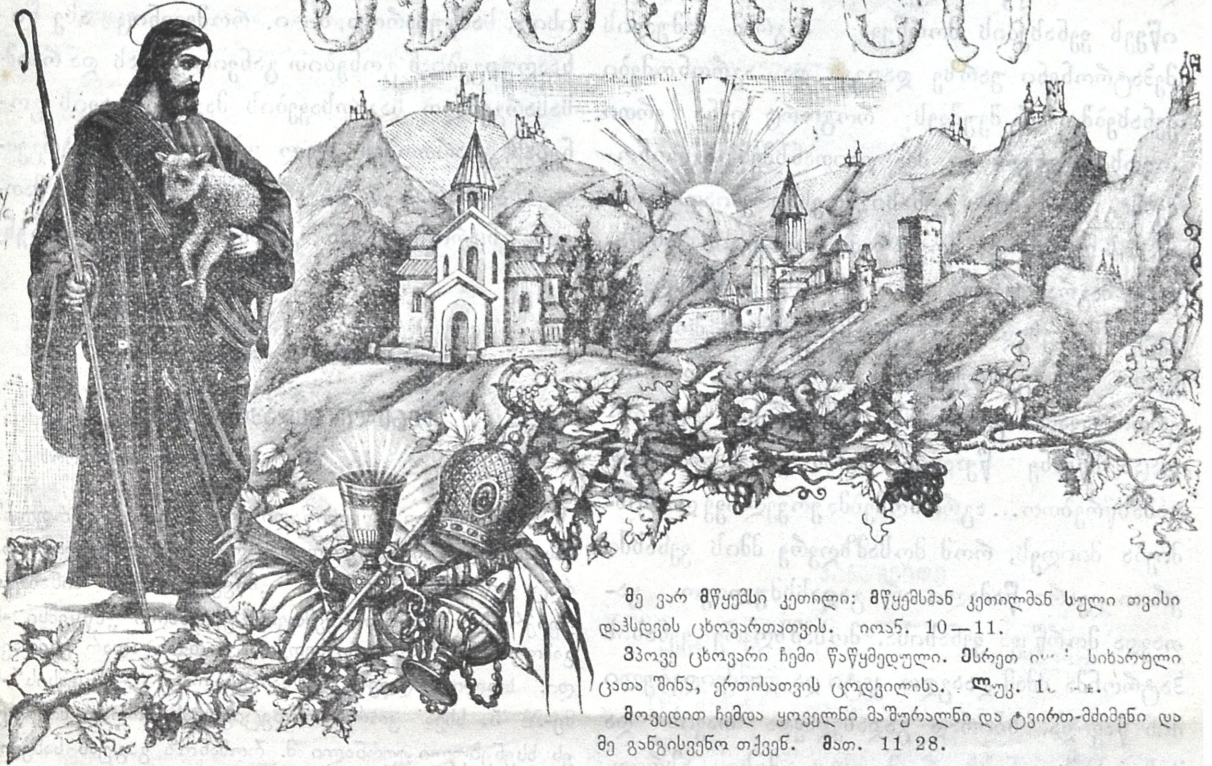 მე ვარ მწყემსი კეთილი: მწყემსმან კეთილმან სული თვისი
დაჰსდვის ცხოვართათვის. იოან. 10—11.
ვპოვე ცხოვარი ჩემი წაწყმედული. ესრეთ სიხარული
ცათა შინა, ერთისათვის ცოდვილისა. ლუკ.
მოვედით ჩემდა ყოველნი მაშურალნი და ტვირთ-მძიმენი და
მე განგისვენო თქვენ. მათ. 11 28.